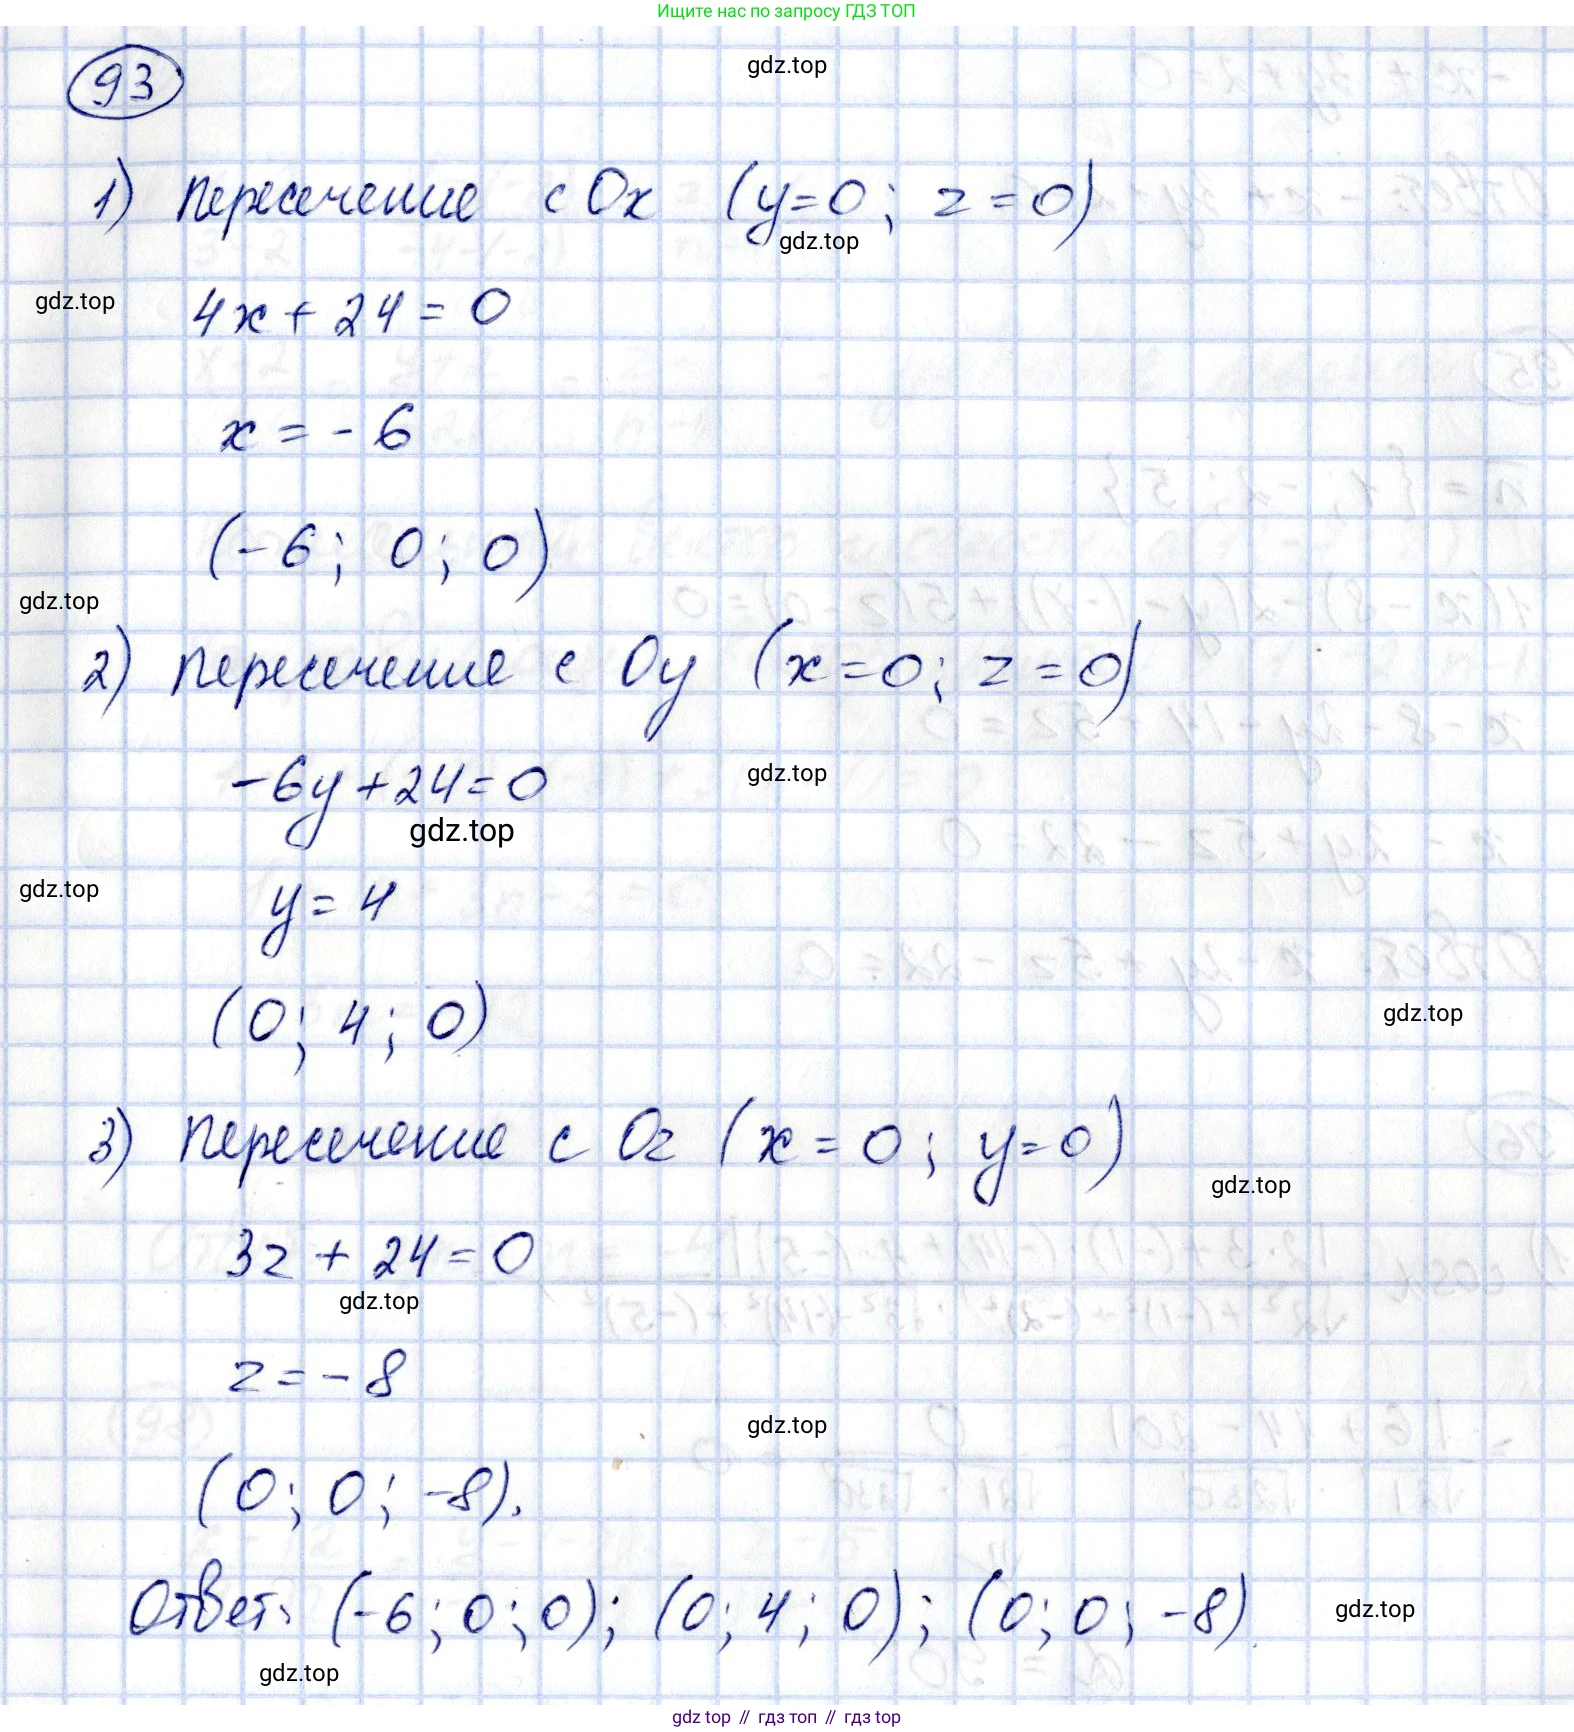 Ищите нас по запросу ГДЗ ТОП
gdz.top
93
1) Пересечение с Ox (y=0; z=0)
gdz.top
gdz.top
4x + 24 = 0
x = -6
(-6; 0; 0)
gdz.top
2) Пересечение с Oy (x=0; z=0)
-6y+24=0
gdz.top
gdz.top
gdz.top
y = 4
(0; 4; 0)
gdz.top
3) Пересечение с Oz (x=0; y=0)
gdz.top
3z + 24=0
gdz.top
z = -8
gdz.top
(0; 0; -8).
Ответ: (-6; 0; 0); (0; 4; 0); (0; 0; -8).
gdz.top
gdz.top
gdz top // гдз топ // гдз top